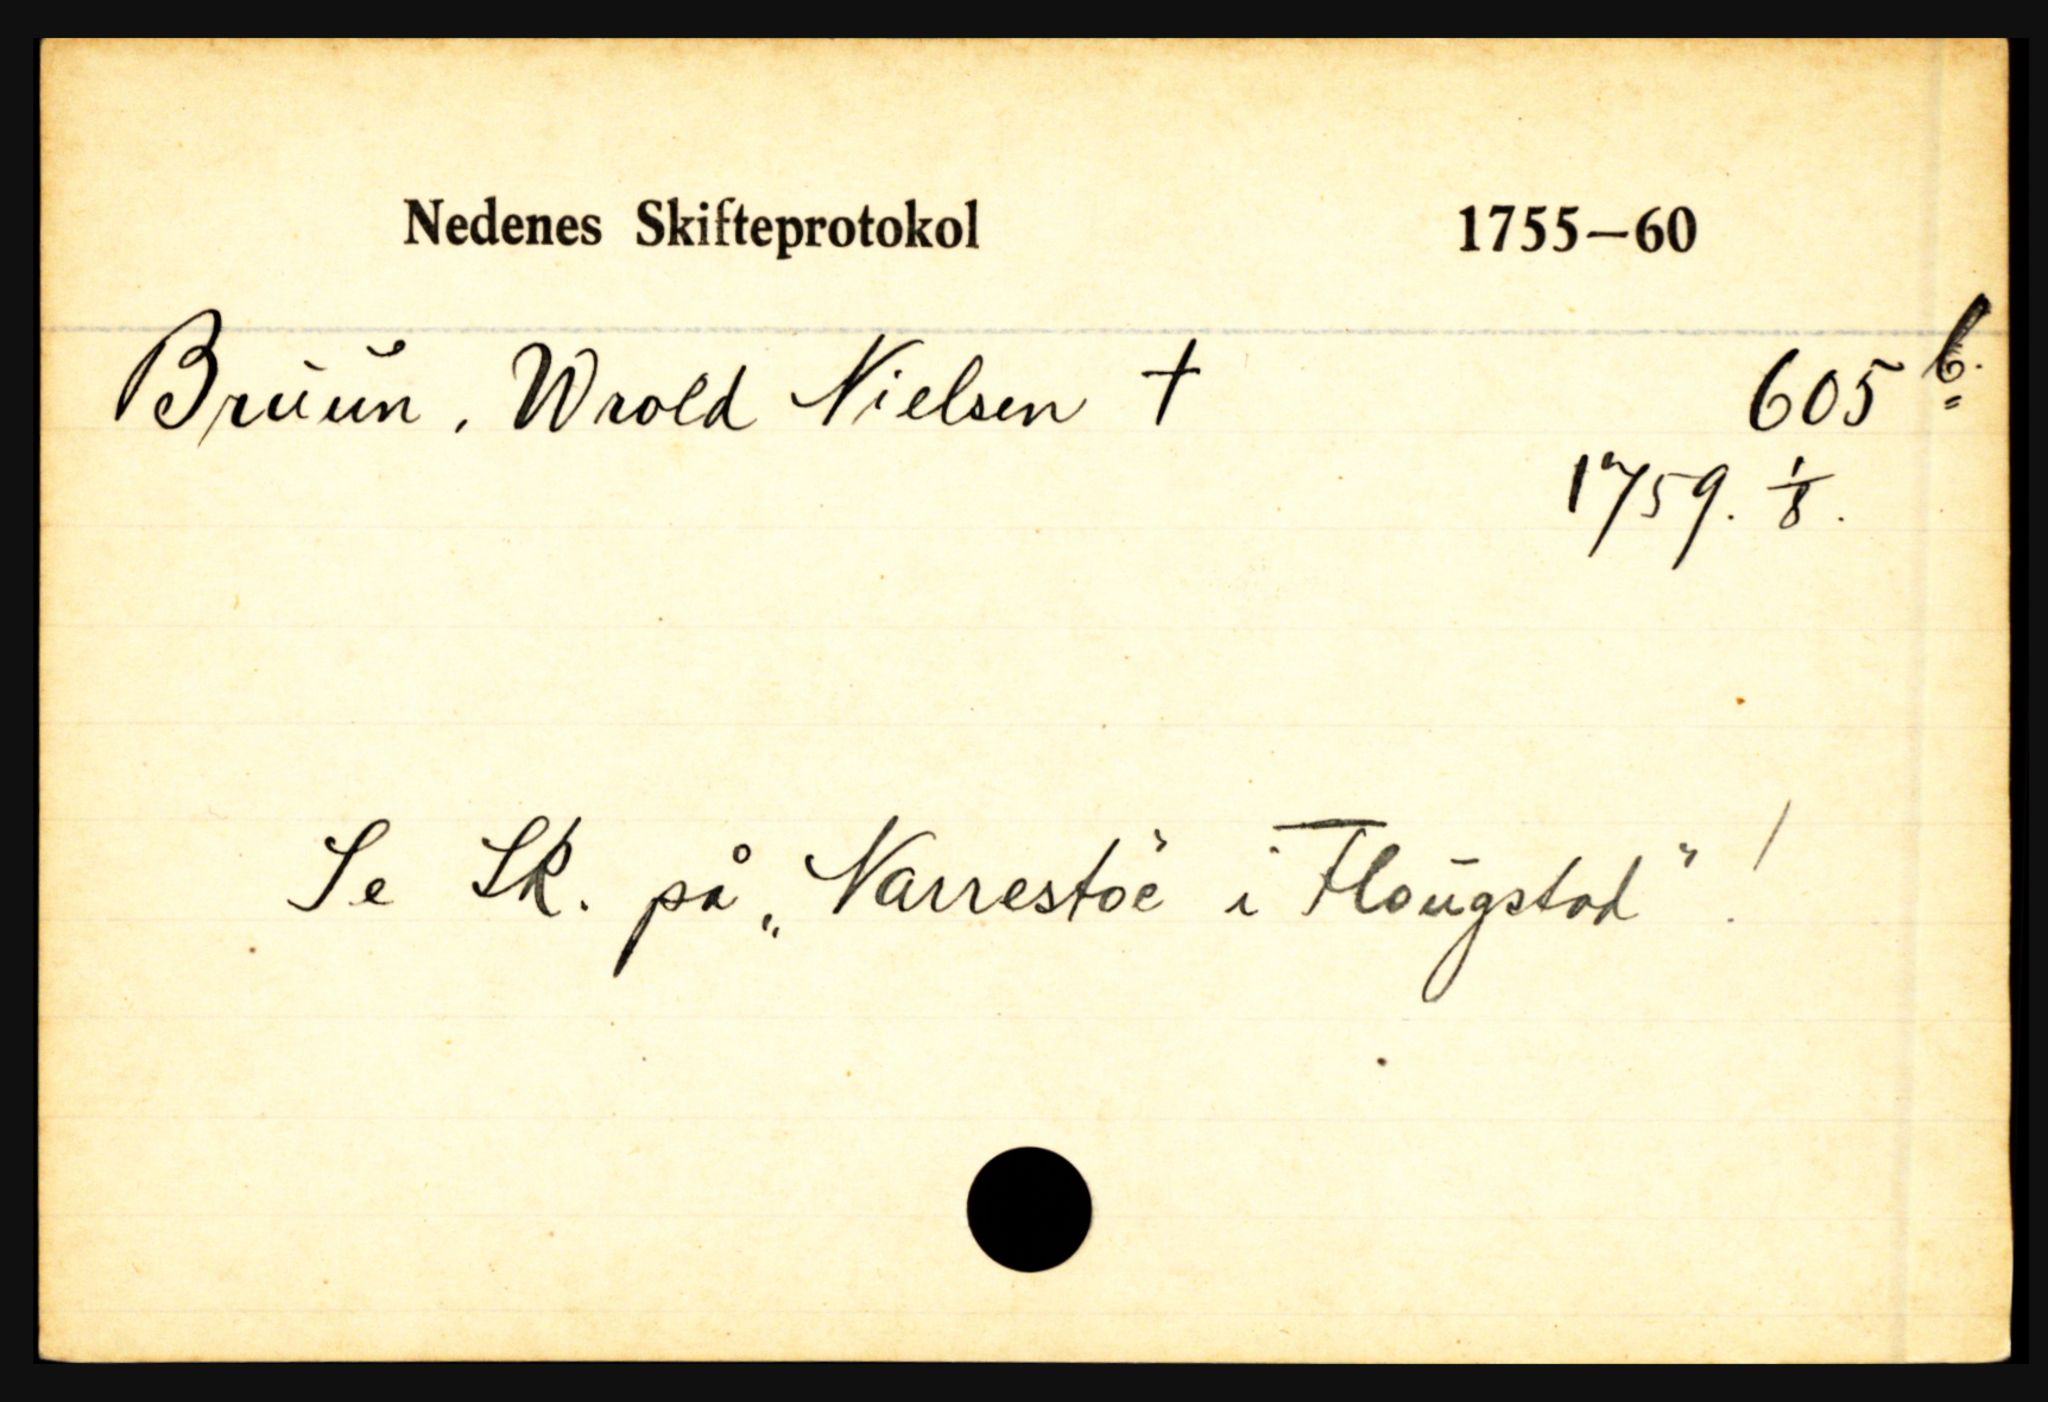 Nedenes Skifteprotokol 1755—60
Bruun, Wrold Nielsen † 605 b.
1759. 1/8.
Se Sk. på „Narrestöe i Flougstad"!